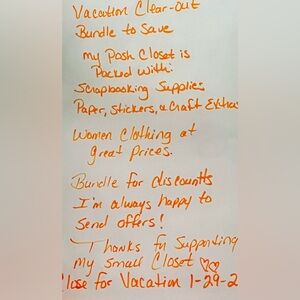 Vacation Clear-Out
Bundle to Save
my Posh Closet is
Packed with:
Scrapbooking Supplies
Paper, Stickers, & Craft Extras
Women Clothing at
great prices.
Bundle for discounts
I'm always happy to
Send offers!
Thanks for Supporting
My Small Closet
Close for Vacation 1-29-2